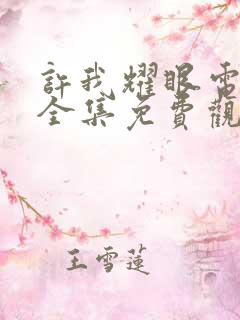 許我耀眼電
全集免費觀
王雪蓮